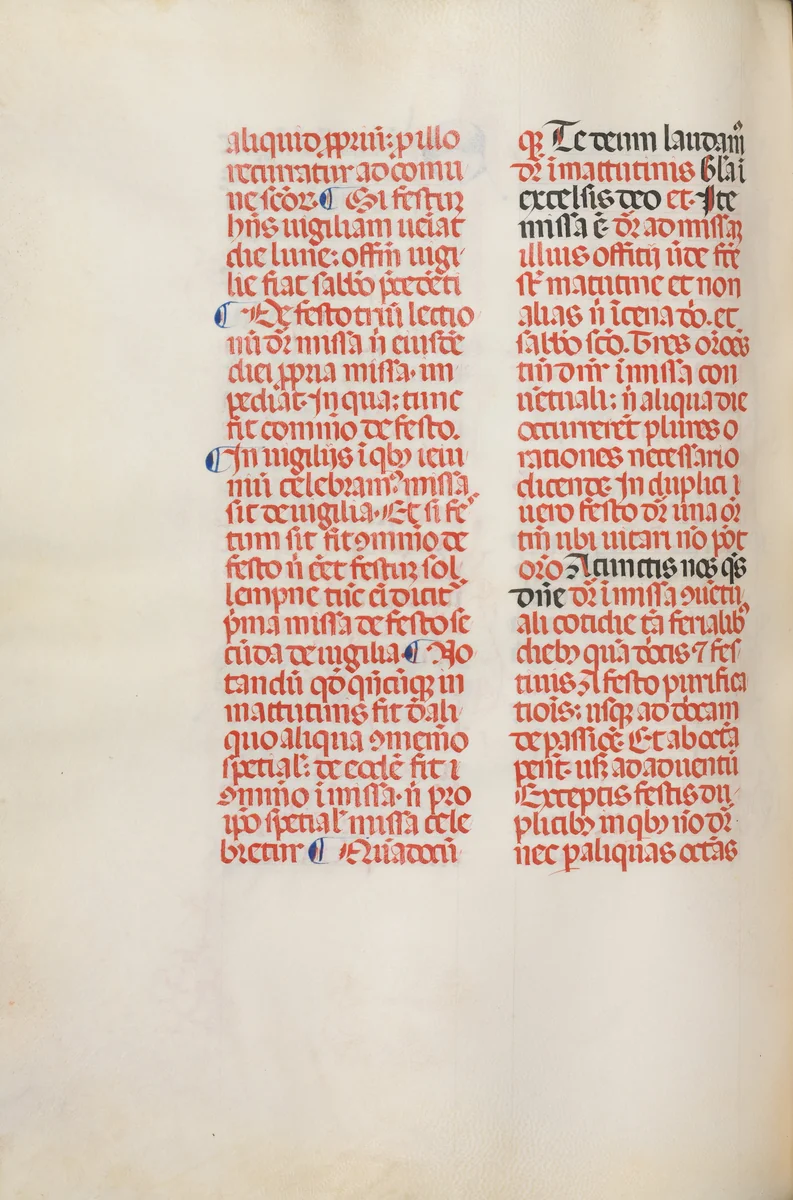 aliquid ꝓpriũ: p illo
recurratur ad comu
ne scõꝝ. ¶ Si festuꝝ
hñs uigiliam ueĩat
die lune: offm̃ uigi
lie fiat sabb̃o p̃cedẽti
¶ De festo triũ lectio
nũ dr̃ missa ñ eiusdẽ
diei ꝓpria missa. im
pediat. In qua: tunc
fit commĩo de festo.
¶ In uigilijs ĩ qbꝫ ieiu
niũ celebram᷒: missa
sit de uigilia. Et si fe
tum sit fit ꝯmmĩo de
festo ñ eẽt festuꝝ sol
lempne tũc eĩ dicit᷑
p̃ma missa de festo se
cũda de uigilia. ¶ No
tandũ qđ qñcũqꝫ in
mattutinis fit đ ali
quo aliqua ꝯmemõ
spetial᷑: de eccl̃e fit ĩ
ꝯmmĩo ĩ missa. ñ pro
ip̃o spetial᷑ missa cele
bretur ¶ Nũadocũ
qꝫ Te deum laudam᷒
dr̃ ĩ mattutinis Gl̃a ĩ
excelsis deo et. Ite
missa ẽ. dr̃ ad missaꝫ
illius officij ũde fc̃e
st̃ matutine et non
alias ñ ĩ cena dñi. et
sabb̃o scõ. Tres or̃oẽs
tm̃ dñr ĩ missa con
uẽtuali: ñ aliqua die
occurrerẽt plures o
rationes necessario
dicende. In duplici ĩ
uero festo dr̃ una or̃
tm̃ ubi uitari nõ põt
or̃o A cunctis nos q̃s
dñe dr̃ ĩ missa ꝯuẽtu
ali cotidie tã ferialibꝫ
diebꝫ quã dctis ⁊ fes
tiuis A festo purifica
tiõis: usqꝫ ad dõcam
de passiõe. Et ab octa
pent. usqꝫ ad aduentũ
Exceptis festis du
plicibꝫ in qbꝫ nõ dr̃.
nec p aliquas octãs